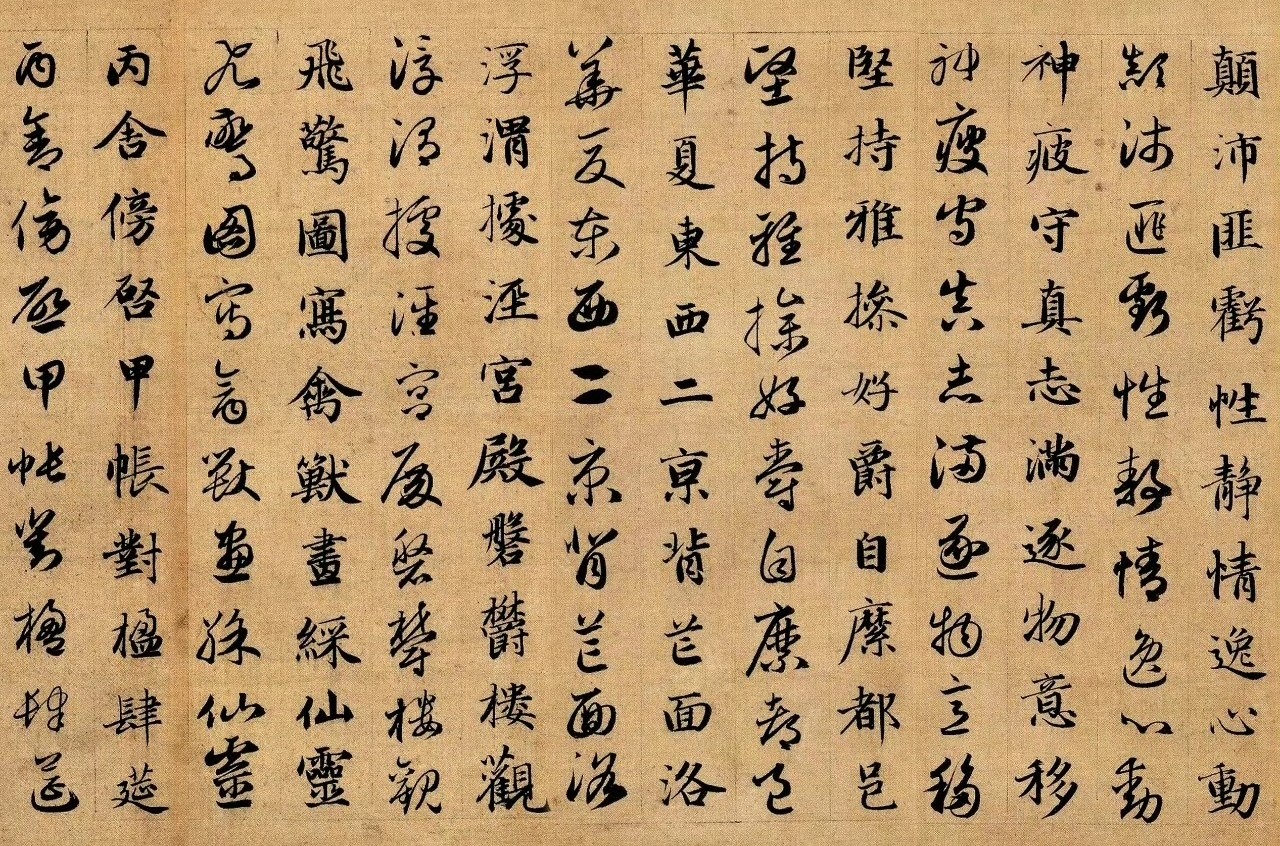 顛沛匪虧性静情逸心動
顛沛匪虧性静情逸心動
神疲守真志滿逐物意移
神疲守真志滿逐物意移
堅持雅操好爵自縻都邑
堅持雅操好爵自縻都邑
華夏東西二京背芒面洛
華夏東西二京背芒面洛
浮渭據涇宮殿磐鬱樓觀
浮渭據涇宮殿磐鬱樓觀
飛驚圖寫禽獸畫綵仙靈
飛驚圖寫禽獸畫綵仙靈
丙舍傍啓甲帳對楹肆筵
丙舍傍啓甲帳對楹肆筵